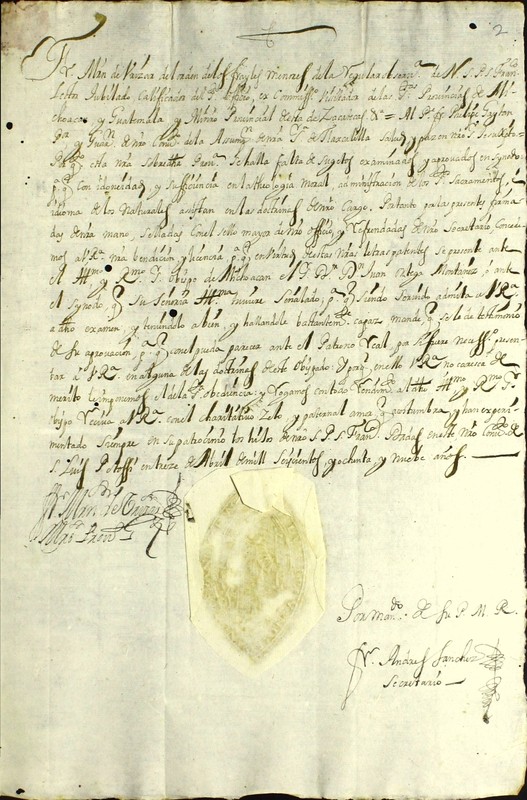 2
Fr. Mãn de del orden de los frayles menores de la Regular obseru.ª de N. S. P. S. Fran.co
Lector Jubilado Calificador del S.to officio, ex Comiss.º Visitador de las S.tas Prouincias de Mi-
choacan y Guatemala y Minro Prouincial de esta de Zacatecas &ª = Al P. Fr. Phelipe Gaytan
Pdor y Guar.n de nro Conu.to de la Assump.n de nra S.ª de Tlaxcalilla salud y paz en nro S.r
Por q.to en la Mag.d falta de sugetos examinados y aprouados en synodo
p.ª q.e con idoneidad y sufficiencia en la theologia moral administracion de los S.tos Sacramentos, é
idioma de los Naturales asistan en las doctrinas de nro Cargo. Portanto por las presentes firma-
das de nra mano, selladas con el sello mayor de nro officio, y refrendadas de nro Secretario, Conce-
mos a V.R.ª nra bendicion y licencia p.ª q.e en virtud destas nras letras patentes se presente ante
el Ill.mo y R.mo S.r Obispo de Mechoacan el S.r D.r D.n Juan ortega Montañez ó ante
el synodo, q.e su Señoria Ill.ma tuuiere señalado, p.ª q.e siendo seruido admita a V.R.ª
a dho examen, y teniendolo a bien, y hallandole bastantem.te capaz mande q.e se le de testimonio
de su aprouacion p.ª q.e con el pueda parecer ante el Patrono Real, para si fuere necess.º presen-
tar a V.R.ª en alguna de las doctrinas de este Obispado: y para q.e en esto V.R.ª no caresca de
merito le imponemos el de la S.ta obediencia: y rogamos con todo rendim.to a dho Ill.mo y R.mo S.r
obispo reciua a V.R.ª con el charitatiuo zelo, y paternal amor q.e acostumbra, y han experi-
mentado siempre en su patrocinio los hijos de nro S. P. S. Fran.co Dadas en este nro Conu.to de
S. Luis Potossi en treze de Abril de mill seiscientos, y ochenta y nueve años.
Fr. Mrn
Mro Prou.l
Por man.do de su P. M. R.
Fr. Andres Sanchez
Secretario